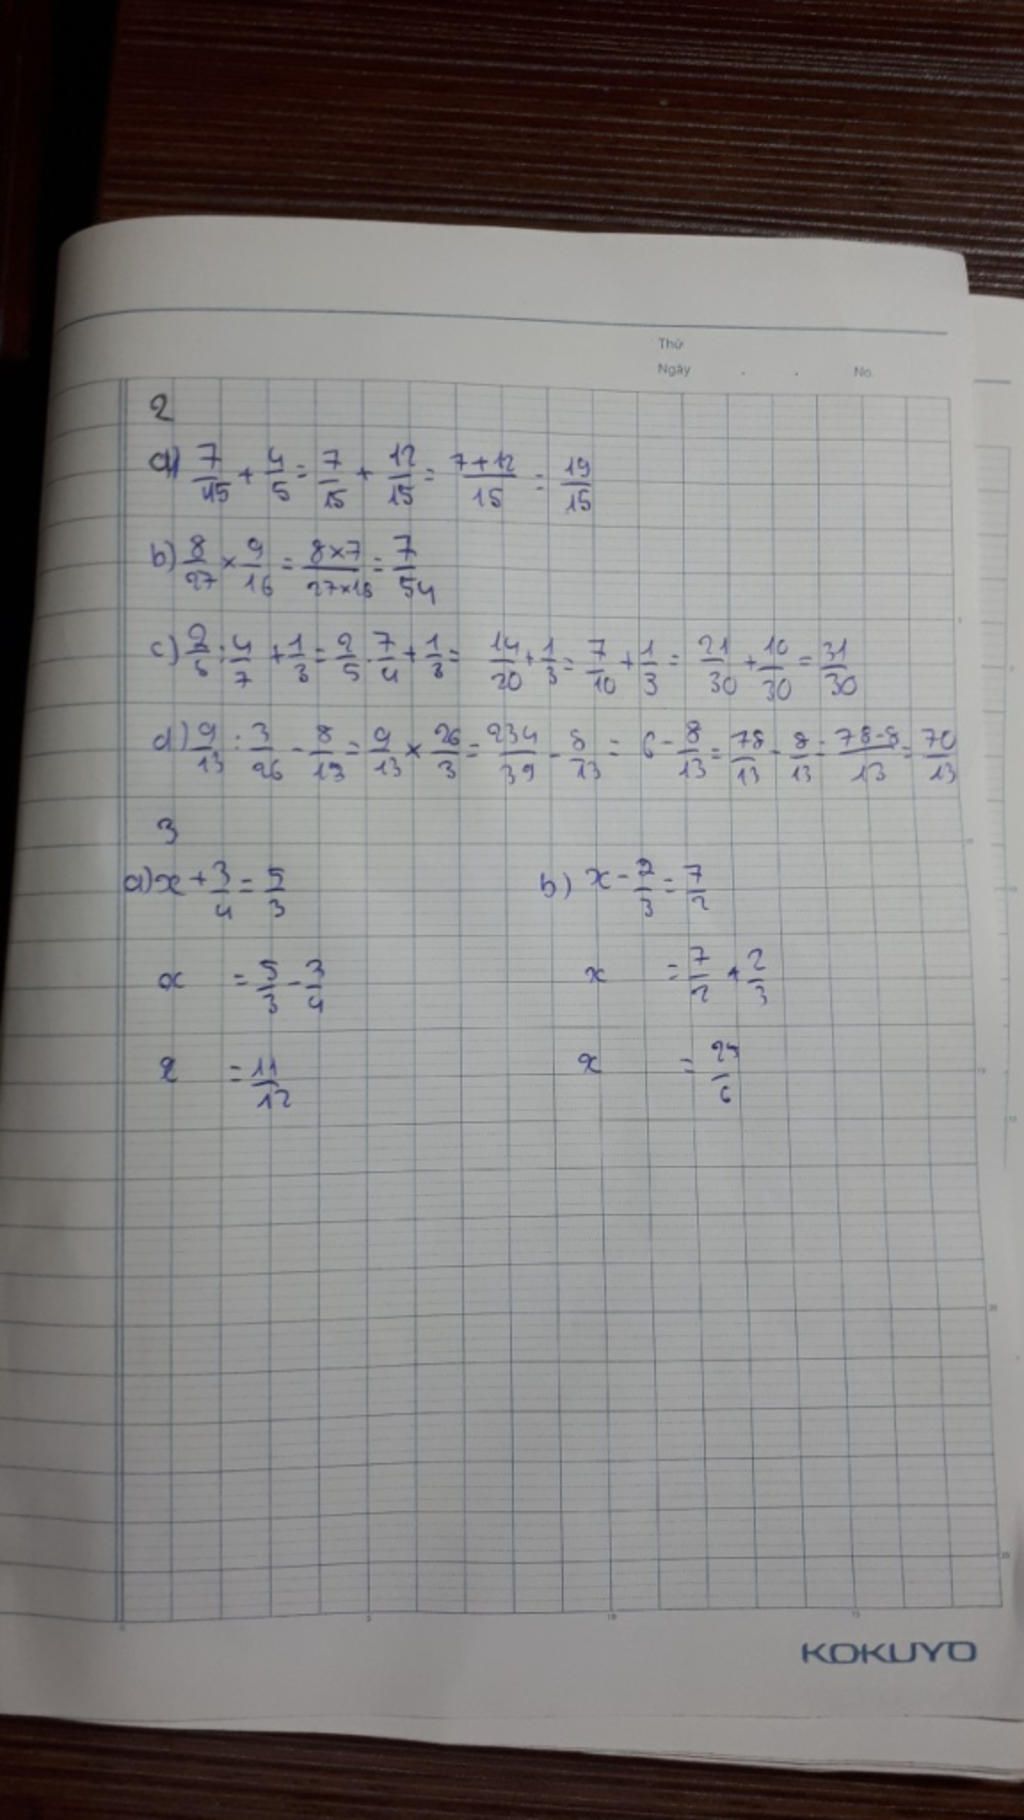 Thứ
Ngày . . No.
2
a) 7/15 + 4/5 = 7/15 + 12/15 = 7+12/15 = 19/15
b) 8/27 × 9/16 = 8×7/27×16 = 7/54
c) 2/5 : 4/7 + 1/3 = 2/5 . 7/4 + 1/3 = 14/20 + 1/3 = 7/10 + 1/3 = 21/30 + 10/30 = 31/30
d) 9/13 : 3/26 - 8/13 = 9/13 × 26/3 = 234/39 - 8/13 = 6 - 8/13 = 78/13 - 8/13 = 78-8/13 = 70/13
3
a) x + 3/4 = 5/3 b) x - 2/3 = 7/2
x = 5/3 - 3/4 x = 7/2 + 2/3
x = 11/12 x = 25/6
KOKUYO